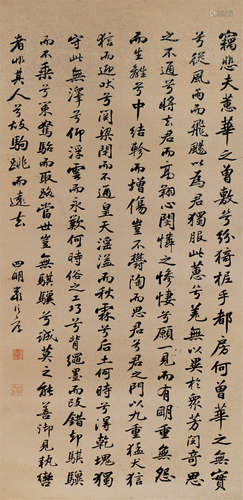 竊悲夫蕙華之曾敷兮紛猗柅乎都房何曾華之無實
兮從風雨而飛颺以為君獨服此蕙兮羌無以異於眾芳閔奇思
之不通兮將去君而高翔心閔憐之慘悽兮願一見而有明重無怨
而生離兮中結軫而增傷豈不鬱陶而思君兮君之門以九重猛犬狺
狺而迎吠兮關梁閉而不通皇天淫溢而秋霖兮后土何時兮得乾塊獨
守此無澤兮仰浮雲而永歎何時俗之工巧兮背繩墨而改錯卻騏驥
而不乘兮策駑駘而取路當世豈無騏驥兮誠莫之能善御見執轡
者非其人兮故駒跳而遠去 四明